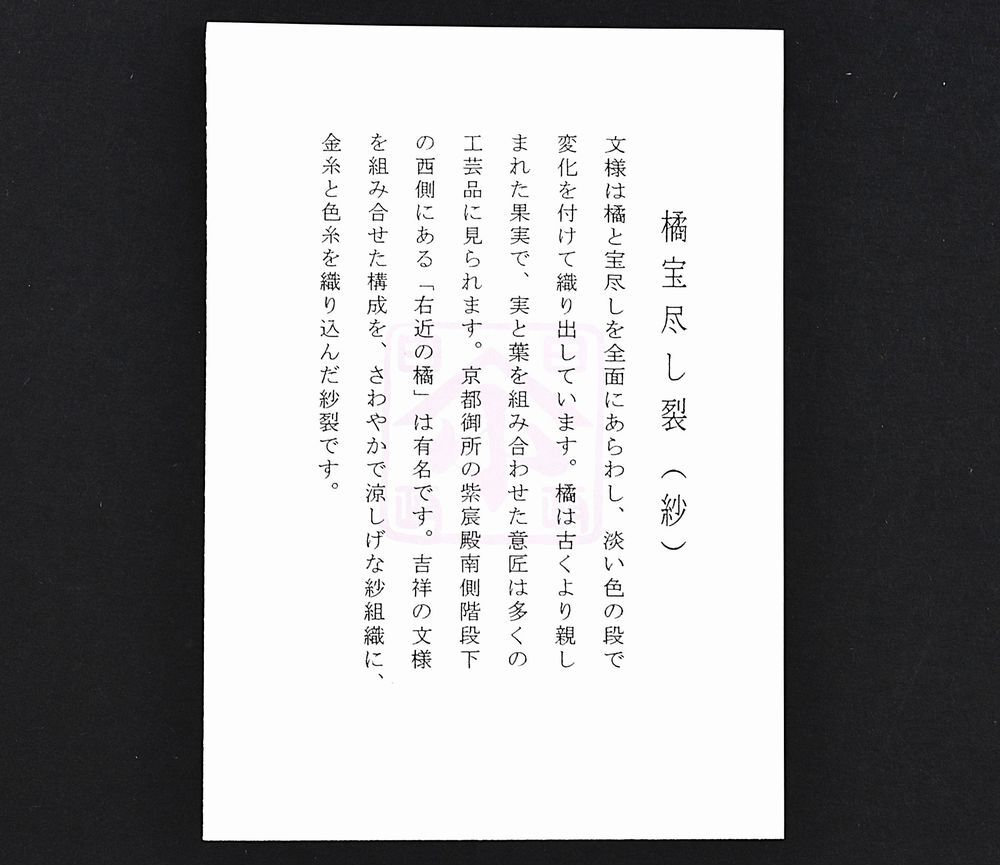 橘宝尽し裂（紗）
文様は橘と宝尽しを全面にあらわし、淡い色の段で
変化を付けて織り出しています。橘は古くより親し
まれた果実で、実と葉を組み合わせた意匠は多くの
工芸品に見られます。京都御所の紫宸殿南側階段下
の西側にある「右近の橘」は有名です。吉祥の文様
を組み合せた構成を、さわやかで涼しげな紗組織に、
金糸と色糸を織り込んだ紗裂です。